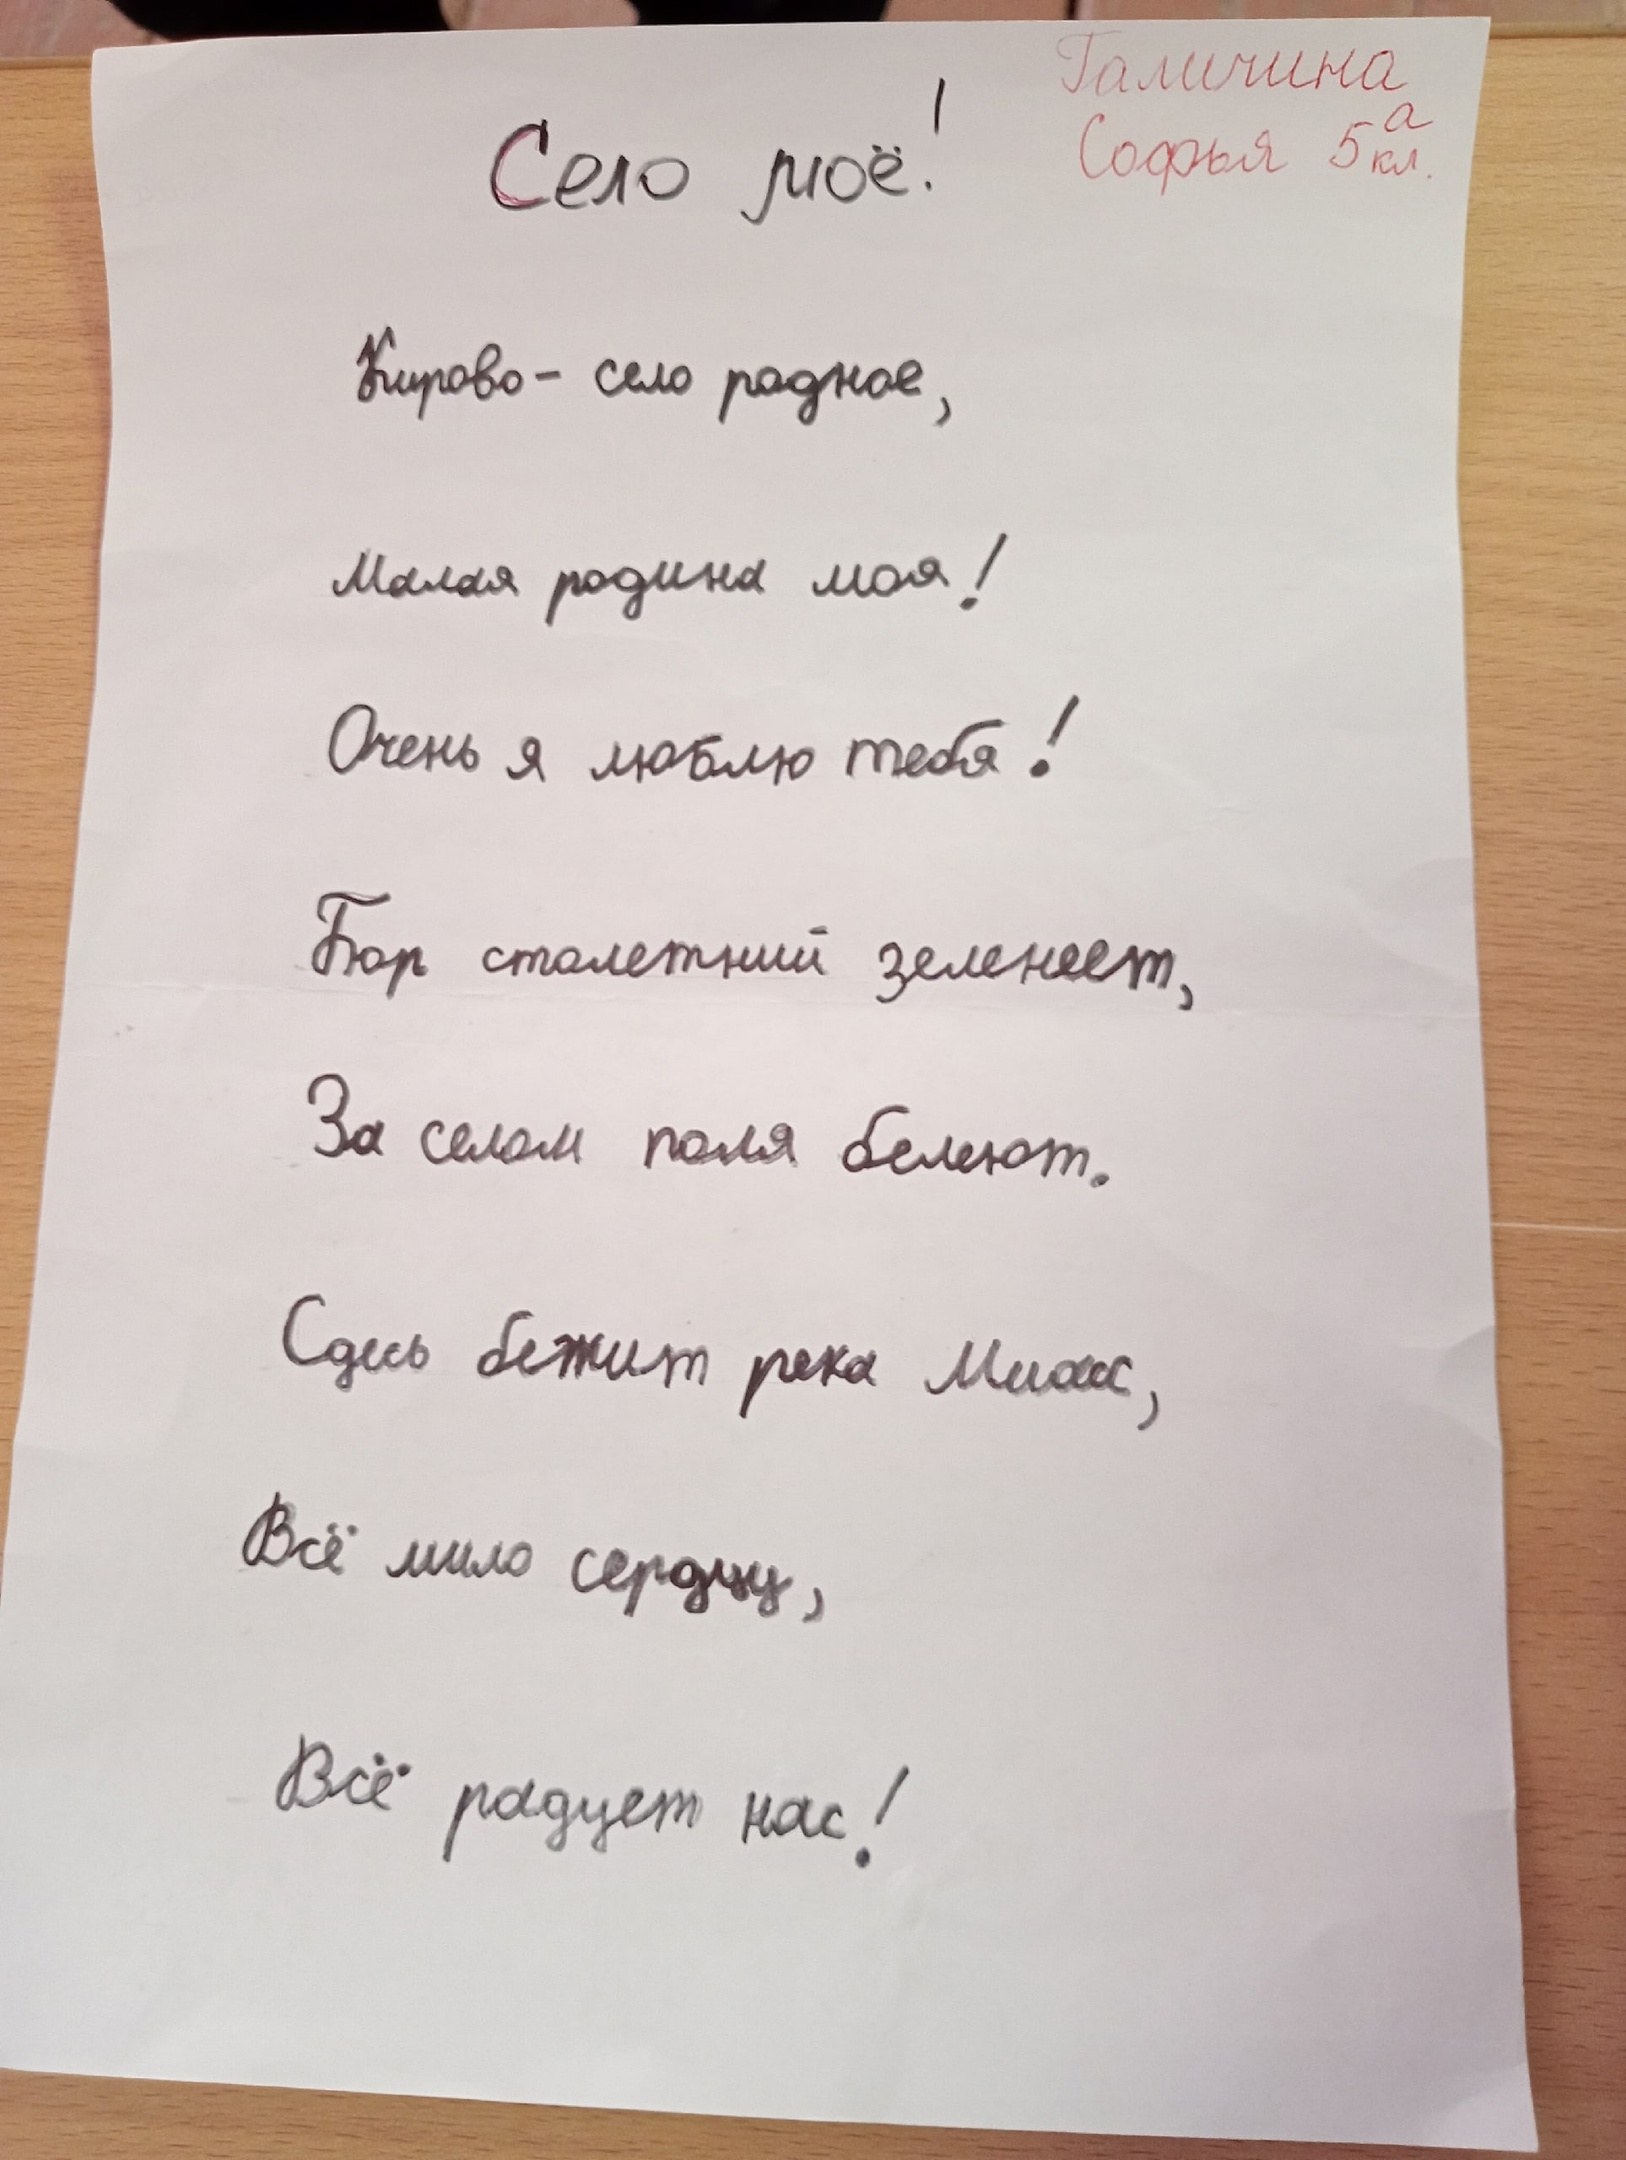 Галичина
Софья 5а кл.
Село моё!
Кирово - село родное,
Малая родина моя!
Очень я люблю тебя!
Бор столетний зеленеет,
За селом поля белеют.
Сдесь бежит река Миасс,
Всё мило сердцу,
Всё радует нас!